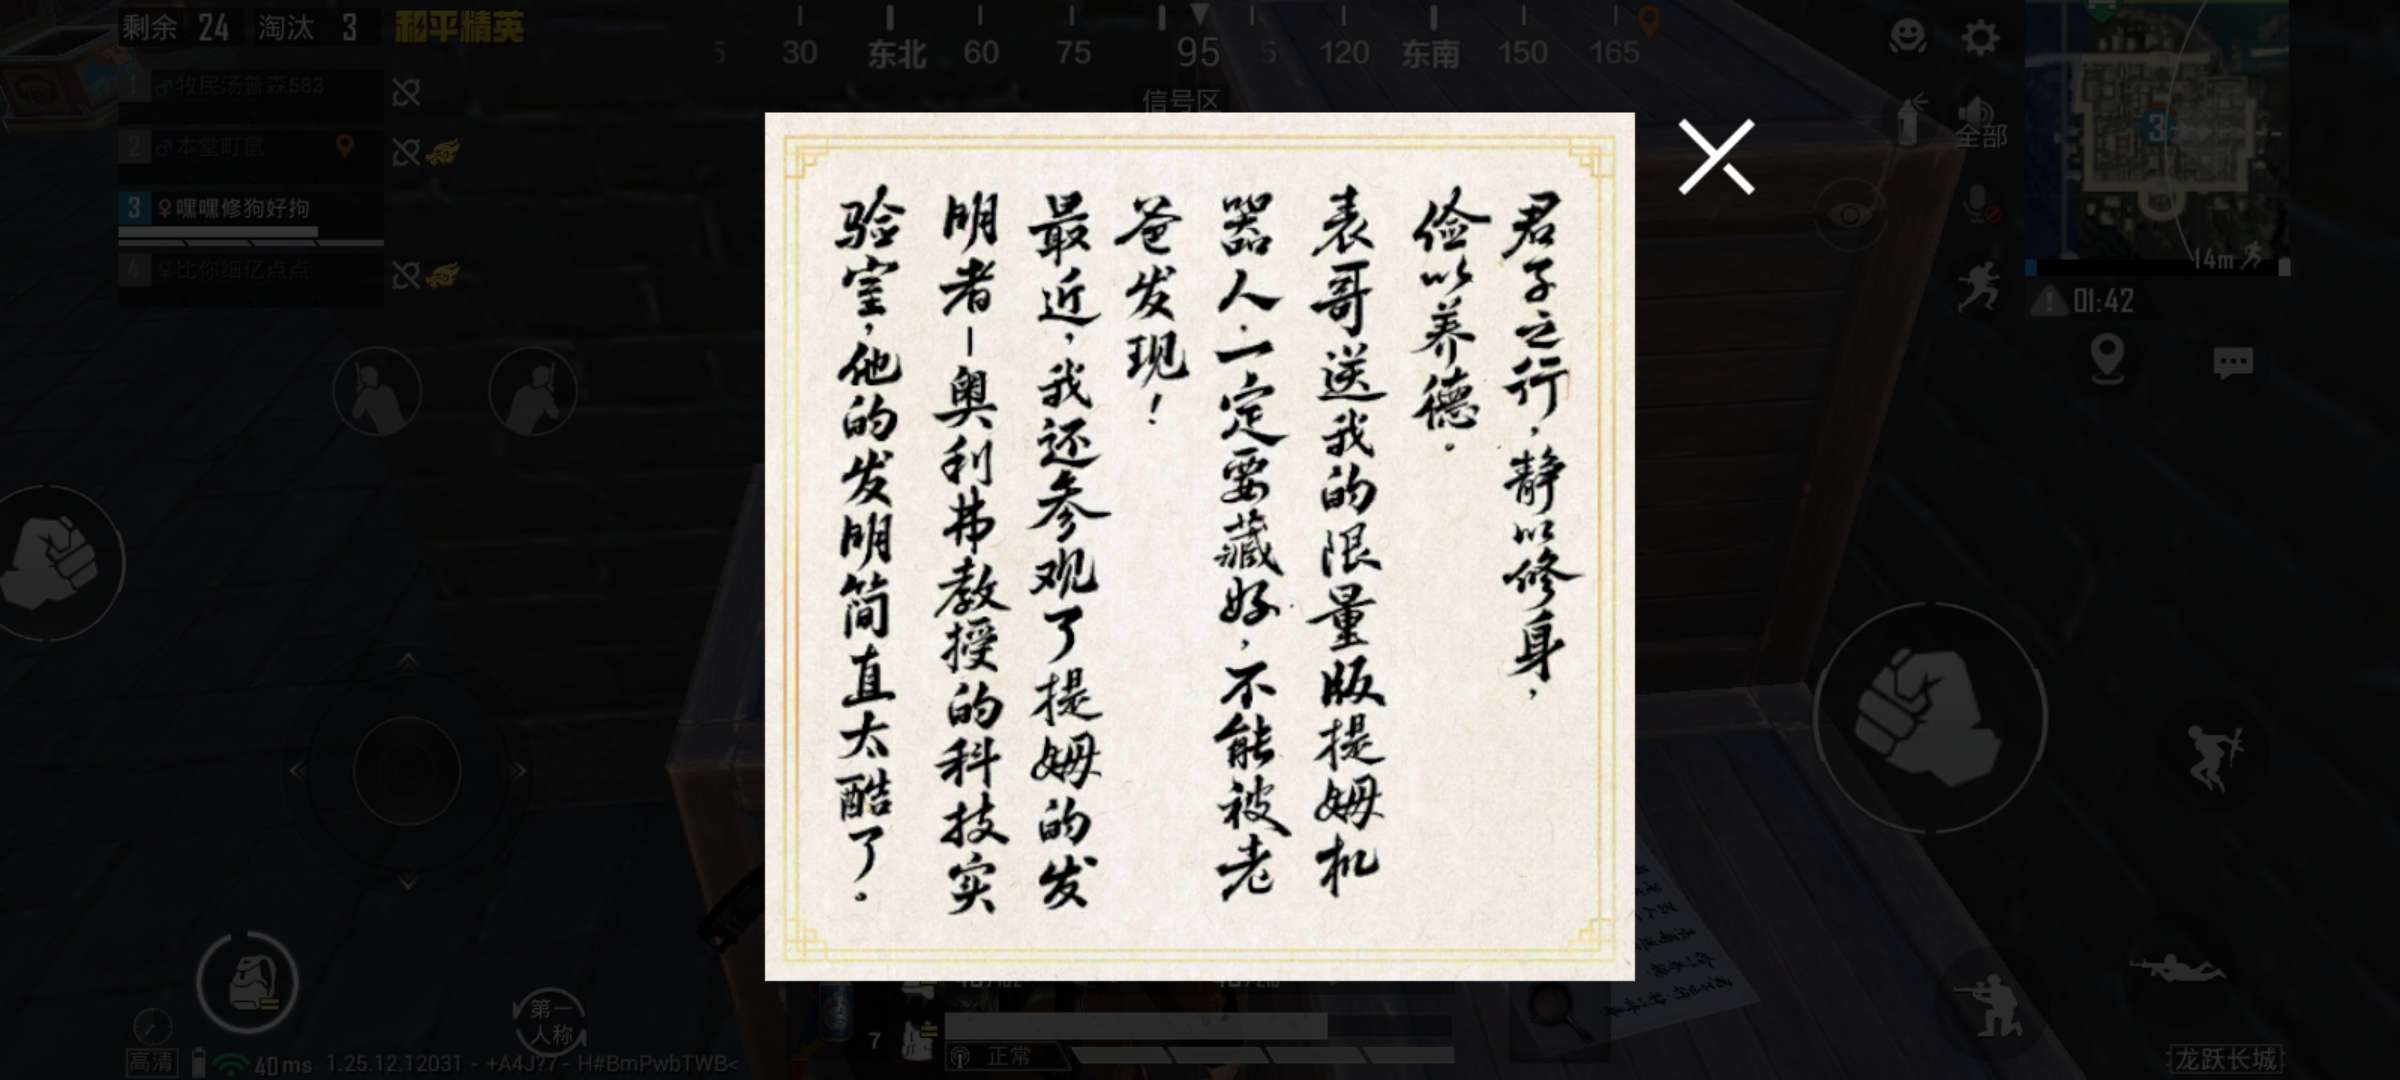 剩余 24 淘汰 3 和平精英
30 东北 60 75 95 5 120 东南 150 165
信号区
1 ♂牧民汤普森583
2 ♂本堂町鼠
3 ♀嘿嘿修狗好拘
4 ♀比你细亿点点
全部
3
14m
01:42
君子之行，静以修身，
俭以养德。
表哥送我的限量版提姆机
器人．一定要藏好，不能被老
爸发现！
最近，我还参观了提姆的发
明者-奥利弗教授的科技实
验室，他的发明简直太酷了。
第一人称
7
正常
高清 40ms 1.25.12.12031 - +A4J?7 - H#BmPwbTWB<
龙跃长城